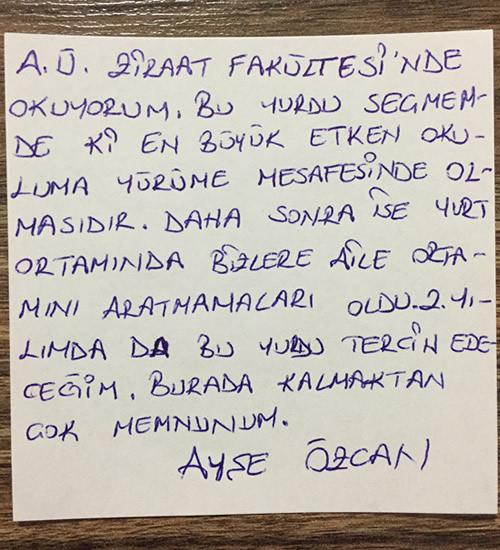 A.Ü. ZİRAAT FAKÜLTESİ'NDE
OKUYORUM. BU YURDU SEGMEM-
DE Kİ EN BÜYÜK ETKEN OKU-
LUMA YÜRÜME MESAFESİNDE OL-
MASIDIR. DAHA SONRA İSE YURT
ORTAMINDA BİZLERE AİLE ORTA-
MINI ARATMAMALARI OLDU. 2. YI-
LIMDA DA BU YURDU TERCİH EDE-
CEĞİM. BURADA KALMAKTAN
GOK MEMNUNUM.
AYŞE ÖZCAN